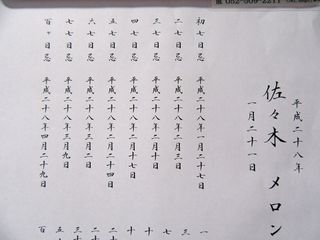 052-509-2211
平成二十八年
佐々木 メロン
一月二十一日
初七日忌 平成二十八年一月二十七日
二七日忌 平成二十八年二月三日
三七日忌 平成二十八年二月十日
四七日忌 平成二十八年二月十七日
五七日忌 平成二十八年二月二十四日
六七日忌 平成二十八年三月二日
七七日忌 平成二十八年三月九日
百ヶ日忌 平成二十八年四月二十九日
一
三
七
十